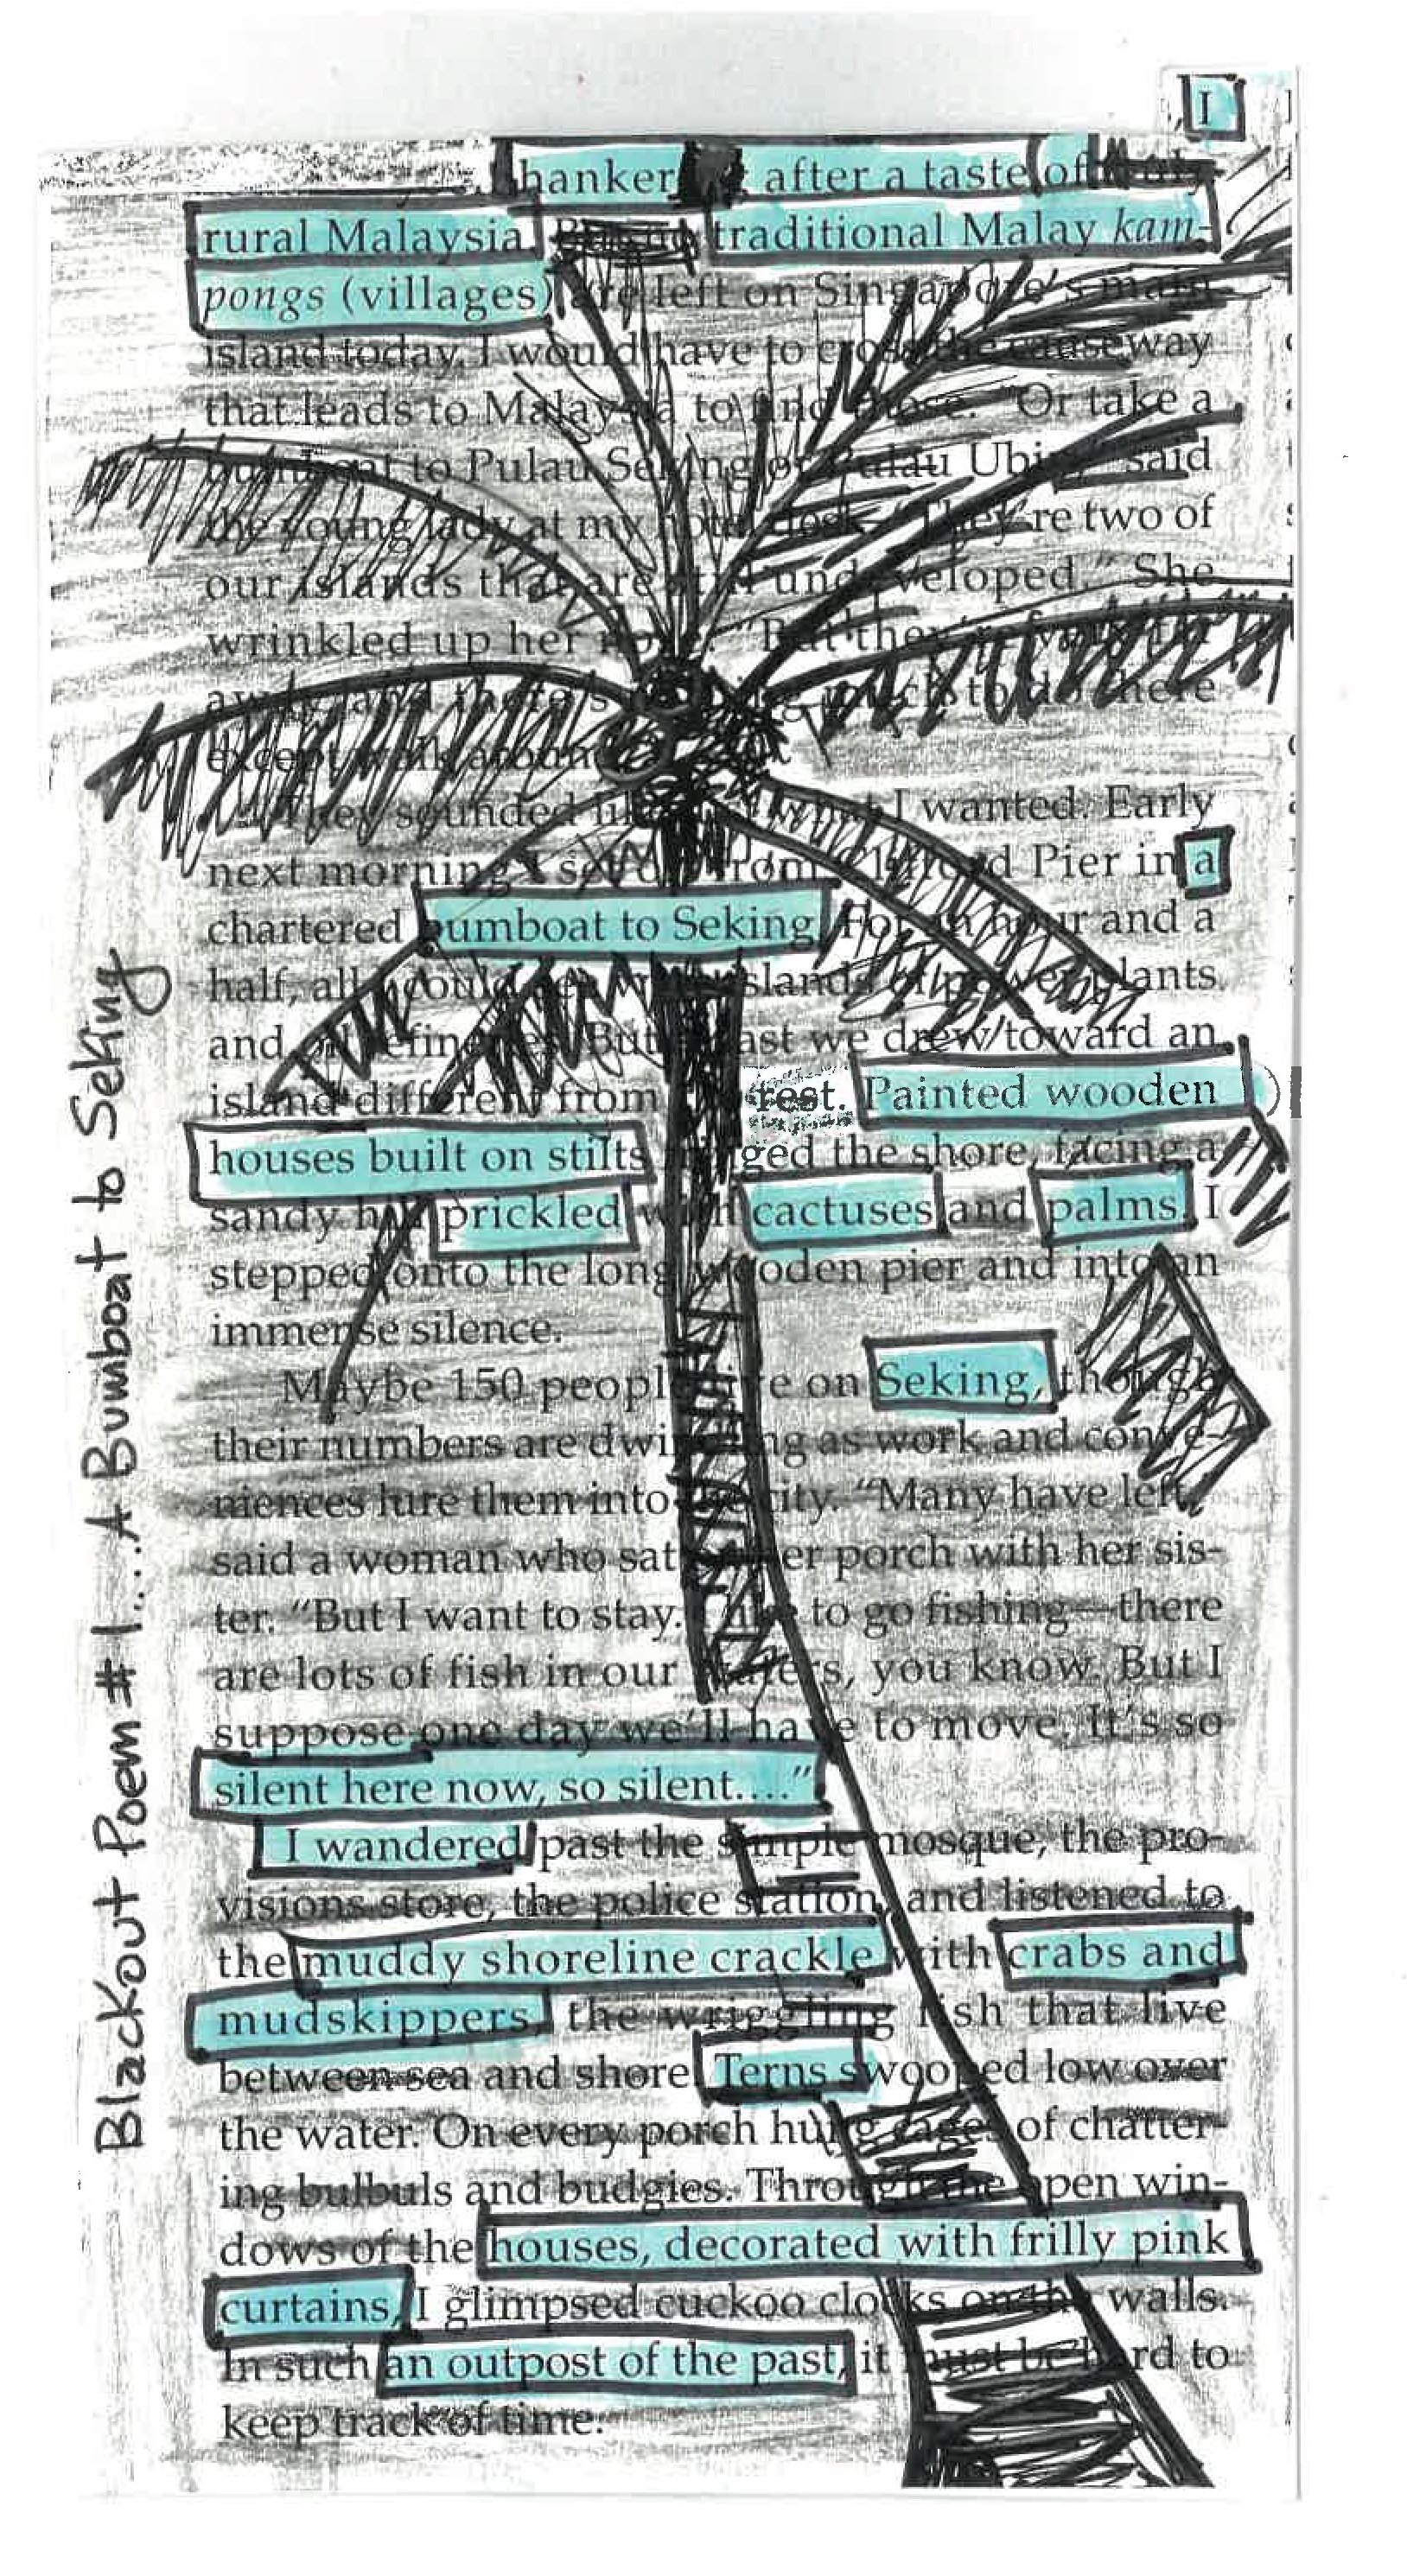 I
hanker after a taste of
rural Malaysia. traditional Malay kam-
pongs (villages) are left on Singapore's main
island today, I would have to cross the causeway
that leads to Malaysia to find those. "Or take a
bumboat to Pulau Seking or Pulau Ubin," said
the young lady at my hotel desk. "They're two of
our islands that are still undeveloped." She
wrinkled up her nose. "But they're
away, and there's much to do there
except walk around
They sounded like what I wanted. Early
next morning I set off from Clifford Pier in a
chartered bumboat to Seking. For an hour and a
half, all I could see were islands of power plants
and oil refineries. But at last we drew toward an
island different from the rest. Painted wooden
houses built on stilts ringed the shore, facing a
sandy hill prickled with cactuses and palms. I
stepped onto the long wooden pier and into an
immense silence.
Maybe 150 people live on Seking, though
their numbers are dwindling as work and conve-
niences lure them into the city. "Many have left,"
said a woman who sat on her porch with her sis-
ter. "But I want to stay. I like to go fishing—there
are lots of fish in our waters, you know. But I
suppose one day we'll have to move. It's so
silent here now, so silent...."
I wandered past the simple mosque, the pro-
visions store, the police station, and listened to
the muddy shoreline crackle with crabs and
mudskippers, the wriggling fish that live
between sea and shore. Terns swooped low over
the water. On every porch hung cages of chatter-
ing bulbuls and budgies. Through the open win-
dows of the houses, decorated with frilly pink
curtains, I glimpsed cuckoo clocks on the walls.
In such an outpost of the past, it must be hard to
keep track of time.
Blackout Poem #1.... A Bumboat to Seking